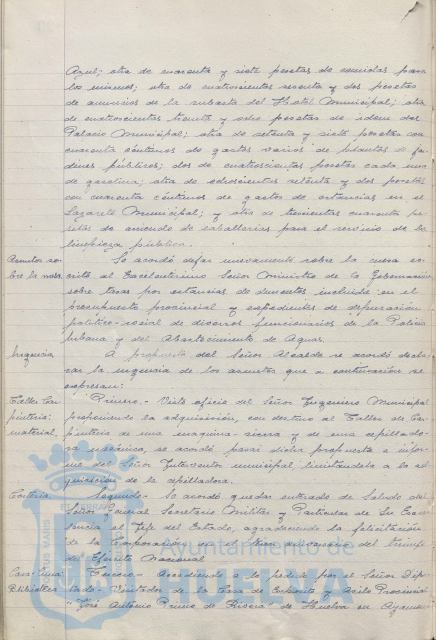 Azul; otra de cuarenta y siete pesetas de semillas para
los mismos; otra de cuatrocientas sesenta y dos pesetas
de anuncios de la subasta del Hotel Municipal; otra
de cuatrocientas treinta y ocho pesetas de idem del
Palacio Municipal; otra de setenta y siete pesetas con
cuarenta céntimos de gastos varios de plantas de jar-
dines públicos; dos de cuatrocientas pesetas cada una
de gasolina; otra de ochocientas setenta y dos pesetas
con cuarenta céntimos de gastos de estancias en el
Lazareto Municipal; y otra de trescientas cuarenta pe-
setas de arriendo de caballerías para el servicio de la
limpieza pública.
Asuntos so-
bre la mesa. Se acordó dejar nuevamente sobre la mesa es-
crito al Excelentísimo Señor Ministro de la Gobernación
sobre tasas por estancias de dementes incluida en el
presupuesto provincial y expedientes de depuración
político-social de diversos funcionarios de la Policía
Urbana y del Abastecimiento de Aguas.
Urgencia A propuesta del Señor Alcalde se acordó decla-
rar la urgencia de los asuntos que a continuación se
expresan:
Taller Car- Primero.- Visto oficio del Señor Ingeniero Municipal
pintería: proponiendo la adquisición, con destino al Taller de Car-
material. pintería de una maquina-sierra y de una cepillado-
ra mecánica, se acordó pasar dicha propuesta a infor-
me del Señor Interventor municipal limitandola a la ad-
quisición de la cepilladora.
Cortesía. Segundo.- Se acordó quedar enterado de Saluda del
Señor General Secretario Militar y Particular de Su Exce-
lencia el Jefe del Estado, agradeciendo la felicitación
de la Corporación en el aniversario del triunfo
del Ejército Nacional
Casa Cuna Tercero.- Accediendo a lo pedido por el Señor Dipu-
Biblioteca tado-Visitador de la Casa de Expósitos y Asilo Provincial
"José Antonio Primo de Rivera" de Huelva en Ayamon-
Ayuntamiento de
HUELVA